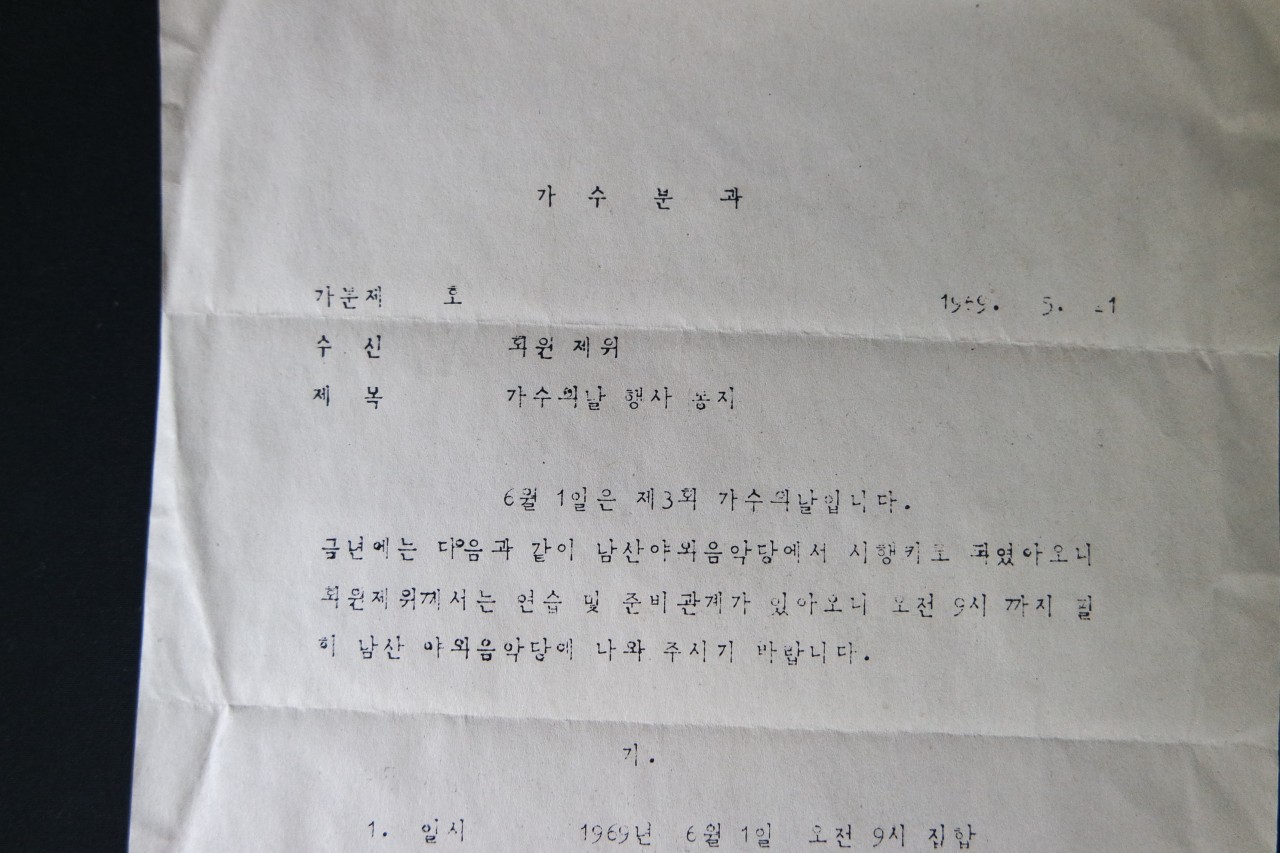 가 수 분 과
가분제 호 1969. 5. 21
수 신 회원 제위
제 목 가수의날 행사 통지
6월 1일은 제3회 가수의날입니다.
금년에는 다음과 같이 남산야외음악당에서 시행키로 되였아오니
회원제위께서는 연습 및 준비관계가 있아오니 오전 9시 까지 필
히 남산 야외음악당에 나와 주시기 바랍니다.
기.
1. 일시 1969년 6월 1일 오전 9시 집합